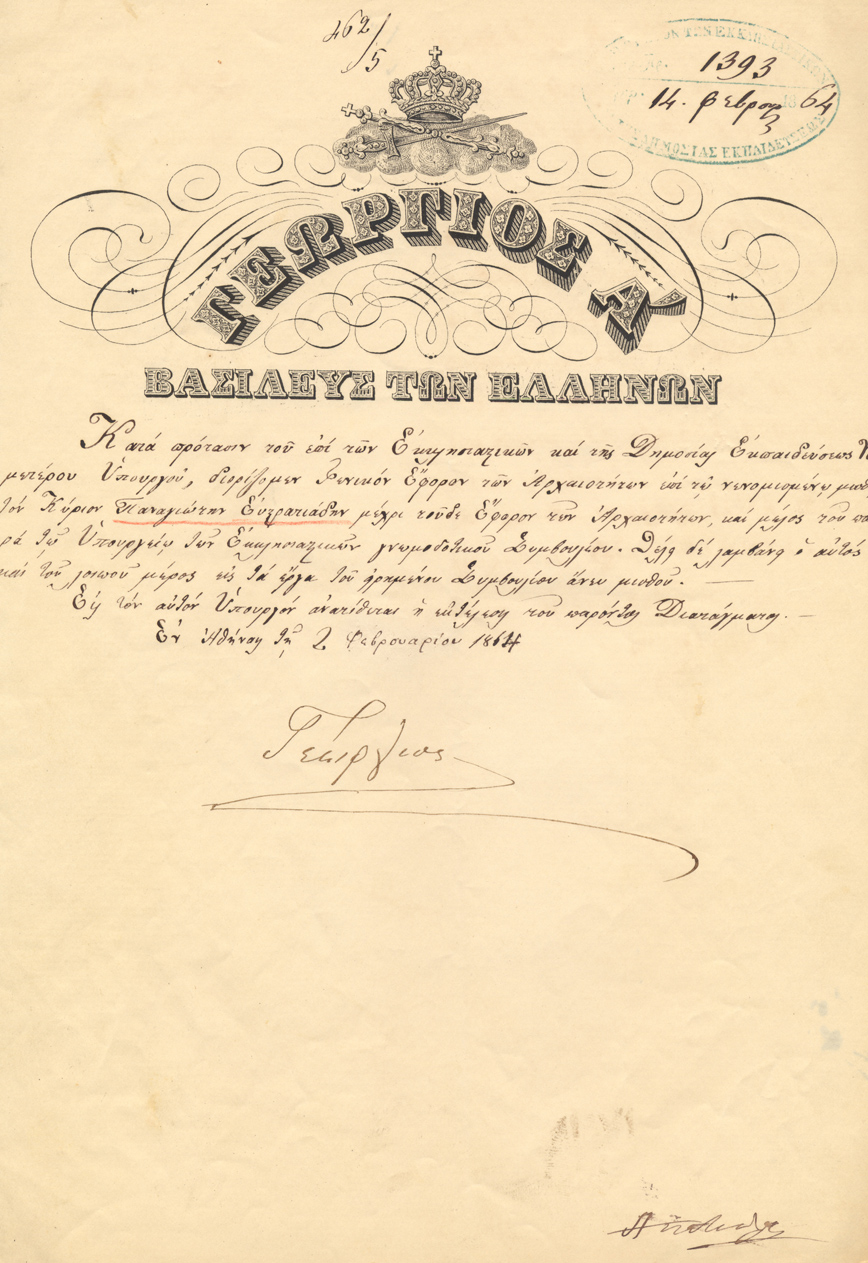 462/5
1393
14. φεβρου 1864
3
ΔΗΜΟΣΙΑΣ ΕΚΠΑΙΔΕΥΣΕΩΣ
ΓΕΩΡΓΙΟΣ Α΄
ΒΑΣΙΛΕΥΣ ΤΩΝ ΕΛΛΗΝΩΝ
Κατά πρότασιν τοῦ ἐπί τῶν Ἐκκλησιαστικῶν καί τῆς Δημοσίας Ἐκπαιδεύσεως Ἡ
μετέρου Ὑπουργοῦ, διορίζομεν Γενικόν Ἔφορον τῶν Ἀρχαιοτήτων ἐπί τῷ νενομισμένῳ μισθῷ
τόν Κύριον Παναγιώτην Εὐστρατιάδην μέχρι τοῦδε Ἔφορον τῶν Ἀρχαιοτήτων, καί μέλος του πα
ρά τῷ Ὑπουργείῳ των Ἐκκλησιαστικῶν γνωμοδοτικοῦ Συμβουλίου. Θέλει δέ λαμβάνει ὁ αὐτός
καί τοῦ λοιποῦ μέρος εἰς τά ἔργα τοῦ εἰρημένου Συμβουλίου ἄνευ μισθοῦ. —
Εἰς τόν αὐτόν Ὑπουργόν ἀνατίθεται ἡ ἐκτέλεσις του παρόντος Διατάγματος. —
Ἐν Ἀθήναις τῇ 2 Φεβρουαρίου 1864
Γεώργιος